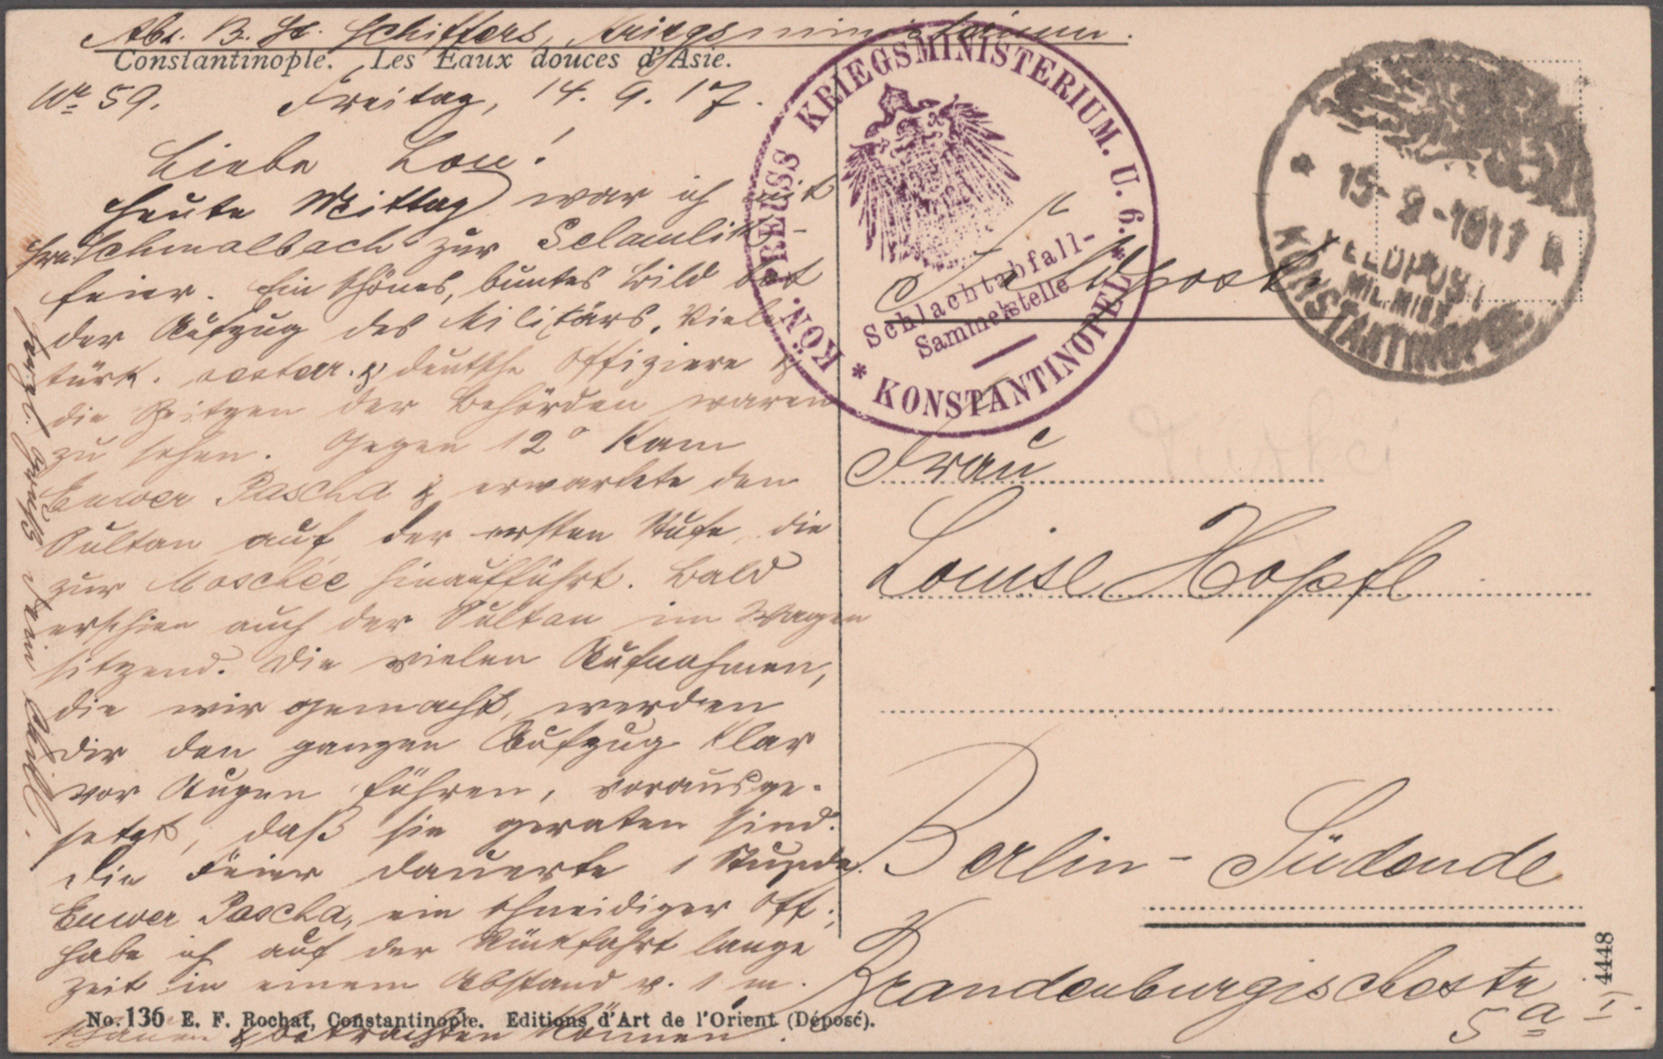 Abs. B. St. Schiffers, Kriegsministerium.
Constantinople. Les Eaux douces d'Asie.
No 59. Freitag, 14. 9. 17.
Liebe Lou!
Heute Mittag war ich mit
Schmalbach zur Selamlik-
feier. Ein schönes, buntes Bild bot
der Aufzug des Militärs. Viele
türk. oesterr. & deutsche Offiziere &
die Spitzen der Behörden waren
zu sehen. Gegen 12° kam
Enwer Pascha & erwartete den
Sultan auf der ersten Stufe, die
zur Moschee hinaufführt. Bald
erschien auch der Sultan im Wagen
sitzend. Die vielen Aufnahmen,
die wir gemacht, werden
Dir den ganzen Aufzug klar
vor Augen führen, vorausge-
setzt, daß sie geraten sind.
Die Feier dauerte 1 Stunde.
Enwer Pascha, ein schneidiger Off.,
habe ich auf der Rückfahrt lange
Zeit in einem Abstand v. 1 m.
schauen & betrachten können.
herzl. Grüße Dein
No. 136 E. F. Rochat, Constantinople. Editions d'Art de l'Orient (Déposé).
KÖN. PREUSS KRIEGSMINISTERIUM. U. 6. * KONSTANTINOPEL *
Schlachtabfall-
Sammelstelle
15-9-1917
FELDPOST
MIL.MISS.
KONSTANTINOPEL
Feldpost.
Türkei
Frau
Louise Hopfl
Berlin-Südende
Brandenburgischestr.
5a I.
4448